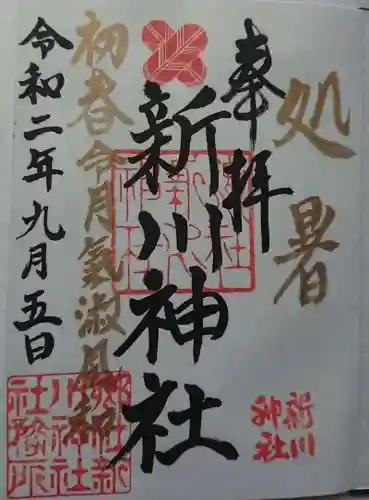 処暑
奉拝
新川神社
初春令月氣淑風和
令和二年九月五日
新川
神社